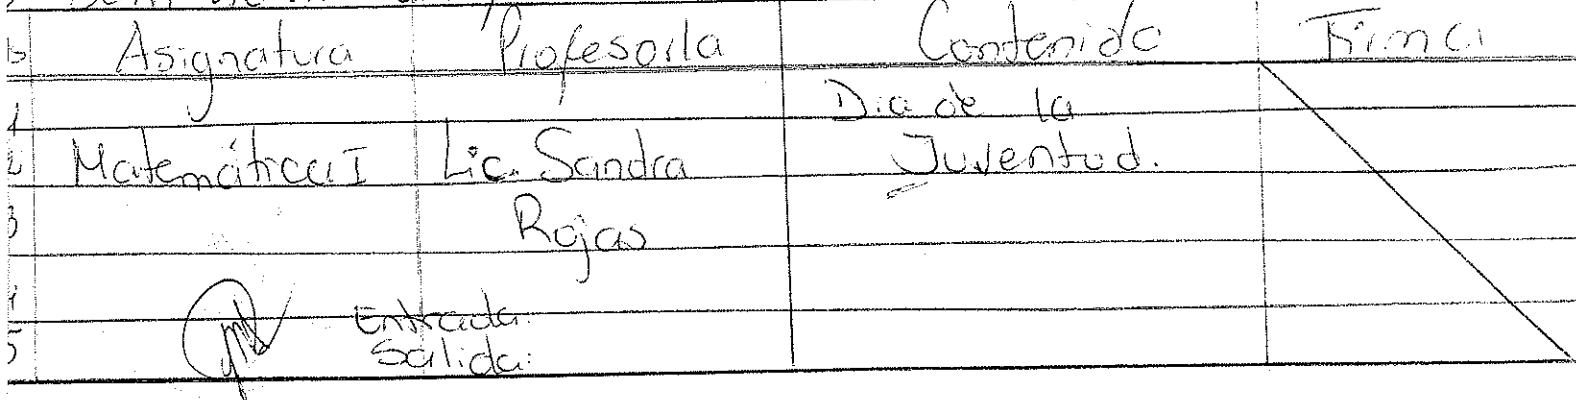 Asignatura Profesor/a Contenido Firma
1 Dia de la
2 Matemática I Lic. Sandra Juventud.
3 Rojas
Entrada:
5 Salida: